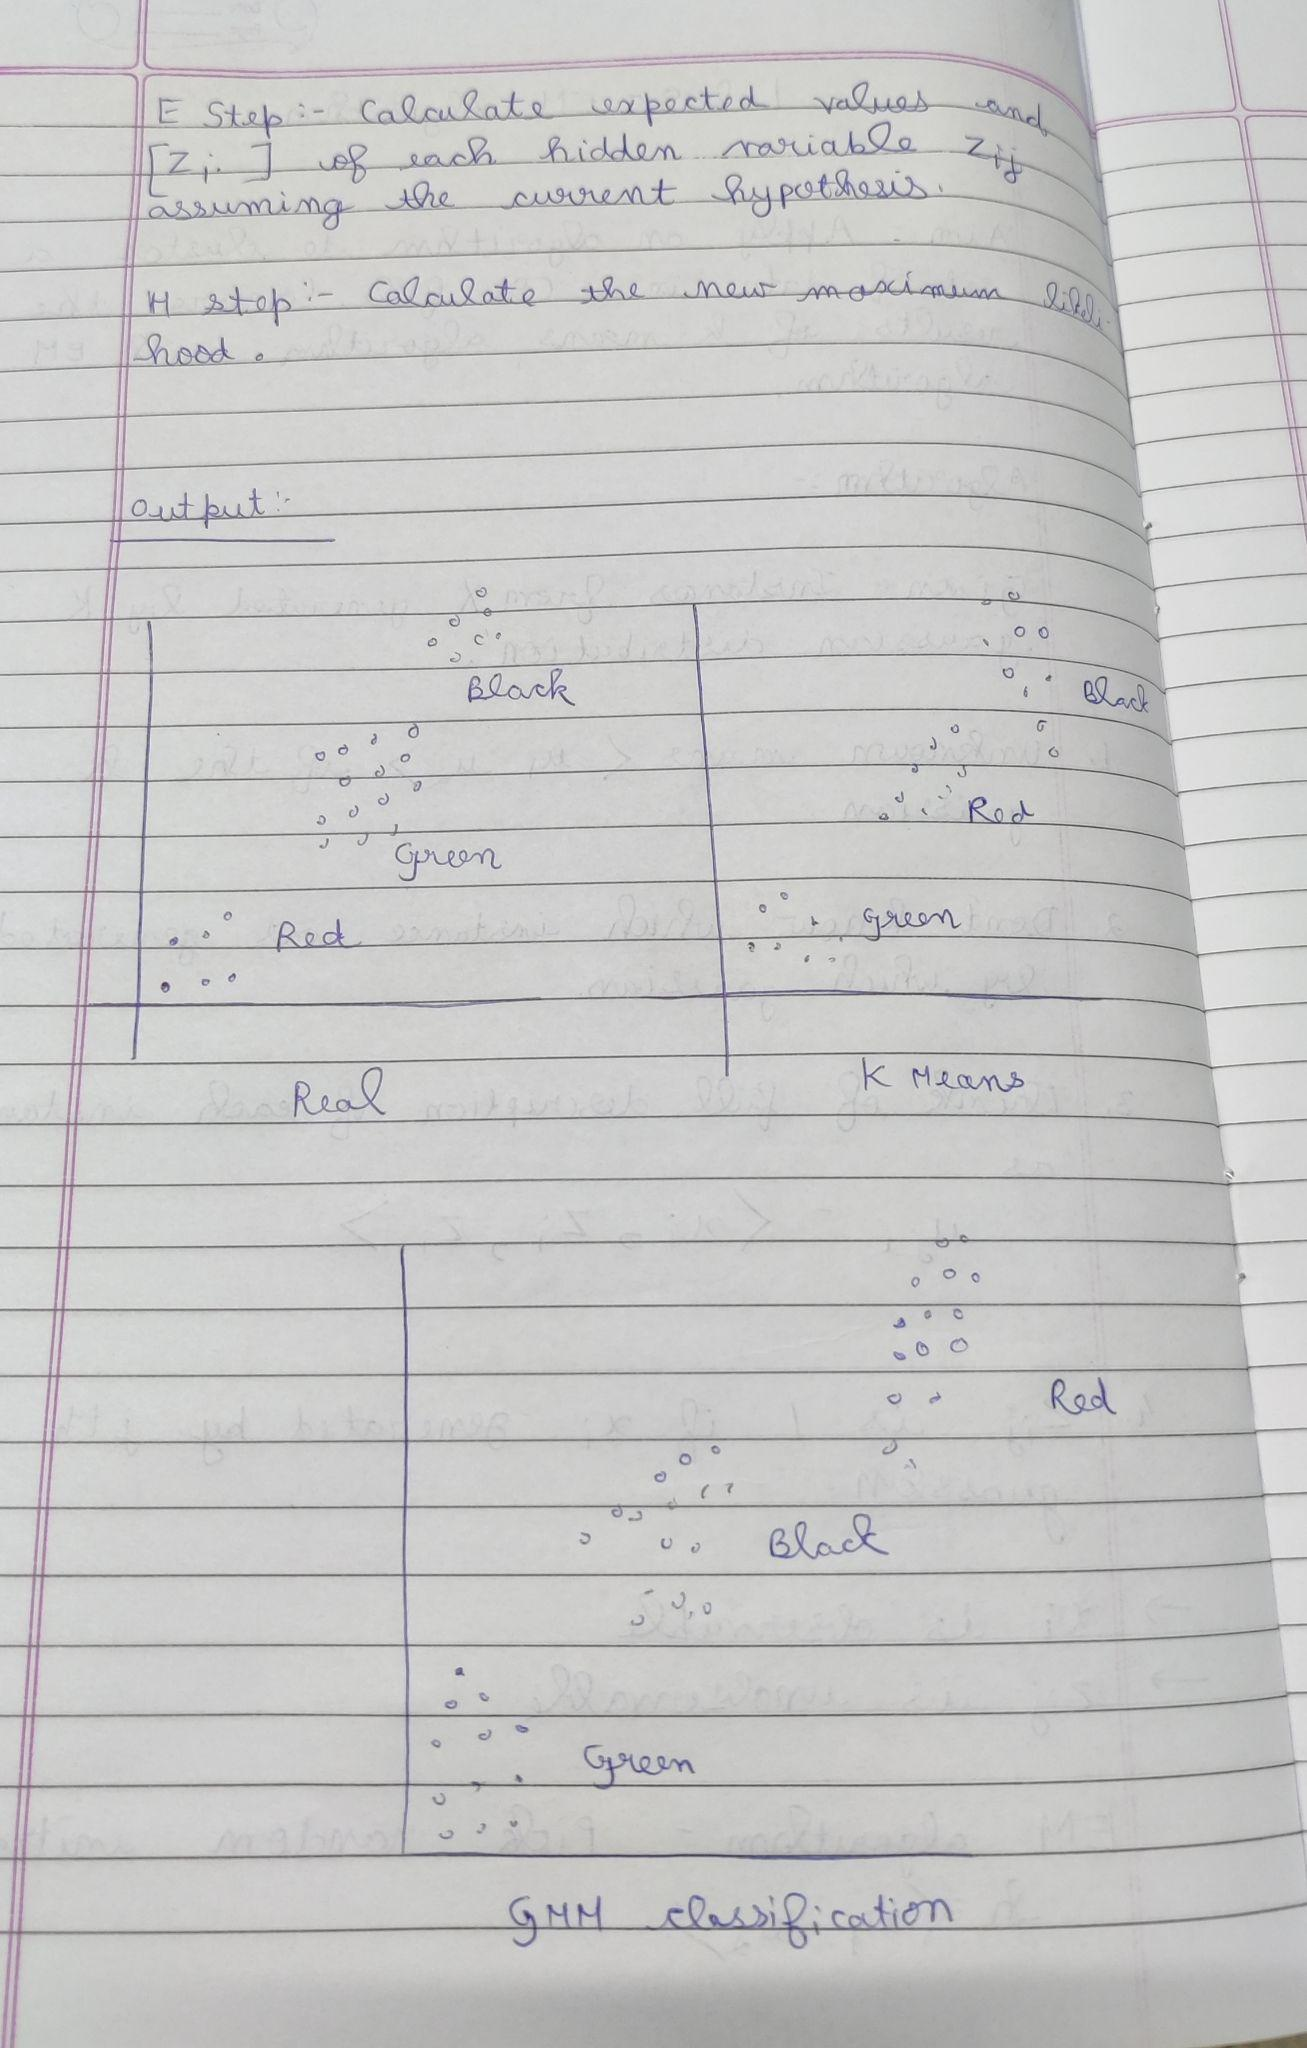 E Step :- Calculate expected values and
[Zi.] of each hidden variable Zij
assuming the current hypothesis.
M step :- Calculate the new maximum likeli-
hood.
Output :-
Black
Green
Red
Real
Black
Red
Green
K Means
Red
Black
Green
GMM classification